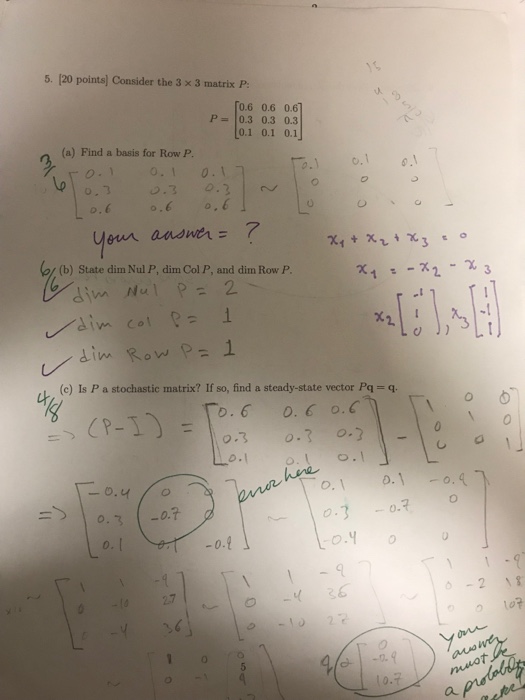 5. [20 points] Consider the 3 × 3 matrix P:
P = [0.6 0.6 0.6
0.3 0.3 0.3
0.1 0.1 0.1]
(a) Find a basis for Row P.
3/6
[0.1 0.1 0.1
0.3 0.3 0.3
0.6 0.6 0.6] ~ [0.1 0.1 0.1
0 0 0
0 0 0]
your answer = ?
x₁ + x₂ + x₃ = 0
x₁ = -x₂ - x₃
6/6 (b) State dim Nul P, dim Col P, and dim Row P.
✓ dim Nul P = 2
✓ dim Col P = 1
✓ dim Row P = 1
x₂[-1
1
0], x₃
4/8 (c) Is P a stochastic matrix? If so, find a steady-state vector Pq = q.
=> (P-I) = [0.6 0.6 0.6
0.3 0.3 0.3
0.1 0.1 0.1] - [1 0 0
0 1 0
0 0 1]
error here
=> [-0.4 0 0
0.3 -0.7 0
0.1 0.1 -0.9] ~ [0.1 0.1 -0.9
0.3 -0.7 0
-0.4 0 0]
~ [1 1 -9
0 -10 27
0 -4 36] ~ [1 1 -9
0 -4 36
0 -10 27] ~
your
answer
must be
a probability